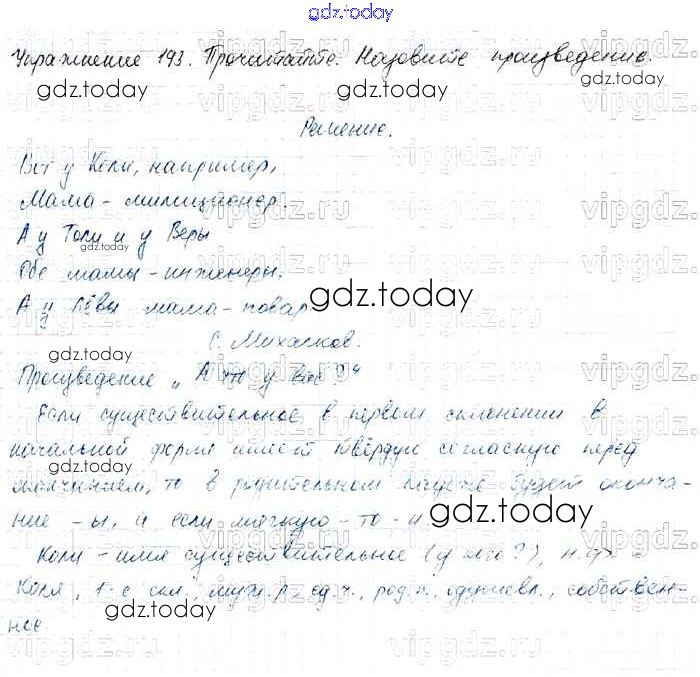 gdz.today
Упражнение 193. Прочитайте. Назовите произведение.
gdz.today gdz.today
Решение.
Вот у Коли, например,
Мама - милиционер.
А у Толи и у Веры
gdz.today
Обе мамы - инженеры.
А у Лёвы мама - повар
gdz.today
С. Михалков.
gdz.today
Произведение „А что у вас?"
Если существительное в первом склонении в
начальной форме имеет твёрдую согласную перед
gdz.today
окончанием, то в родительном падеже будет оконча-
ние -ы, а если мягкую - то -и
gdz.today
Коли - имя существительное (у кого?), н.ф. -
Коля, 1-е скл., муж. р., ед. ч., род. п., одушевл., собствен-
gdz.today gdz.today
ное